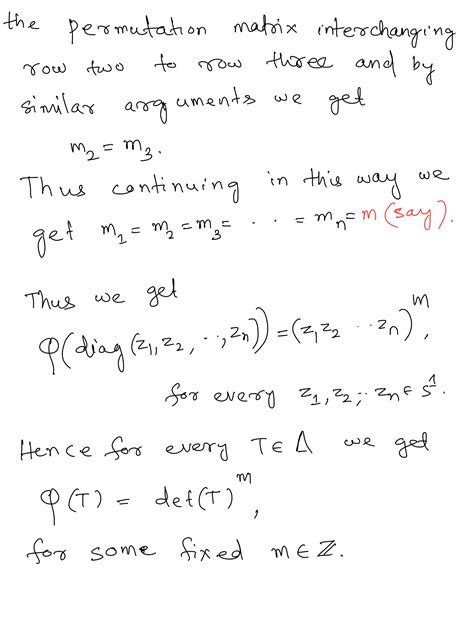 the permutation matrix interchanging
row two to row three and by
similar arguments we get
m₂ = m₃.
Thus continuing in this way we
get m₁ = m₂ = m₃ = · · · = mₙ = m (say).
Thus we get
φ(diag(z₁, z₂, · · , zₙ)) = (z₁z₂ · · zₙ)ᵐ,
for every z₁, z₂, ·· zₙ ∈ S¹.
Hence for every T ∈ Δ we get
φ(T) = det(T)ᵐ,
for some fixed m ∈ ℤ.